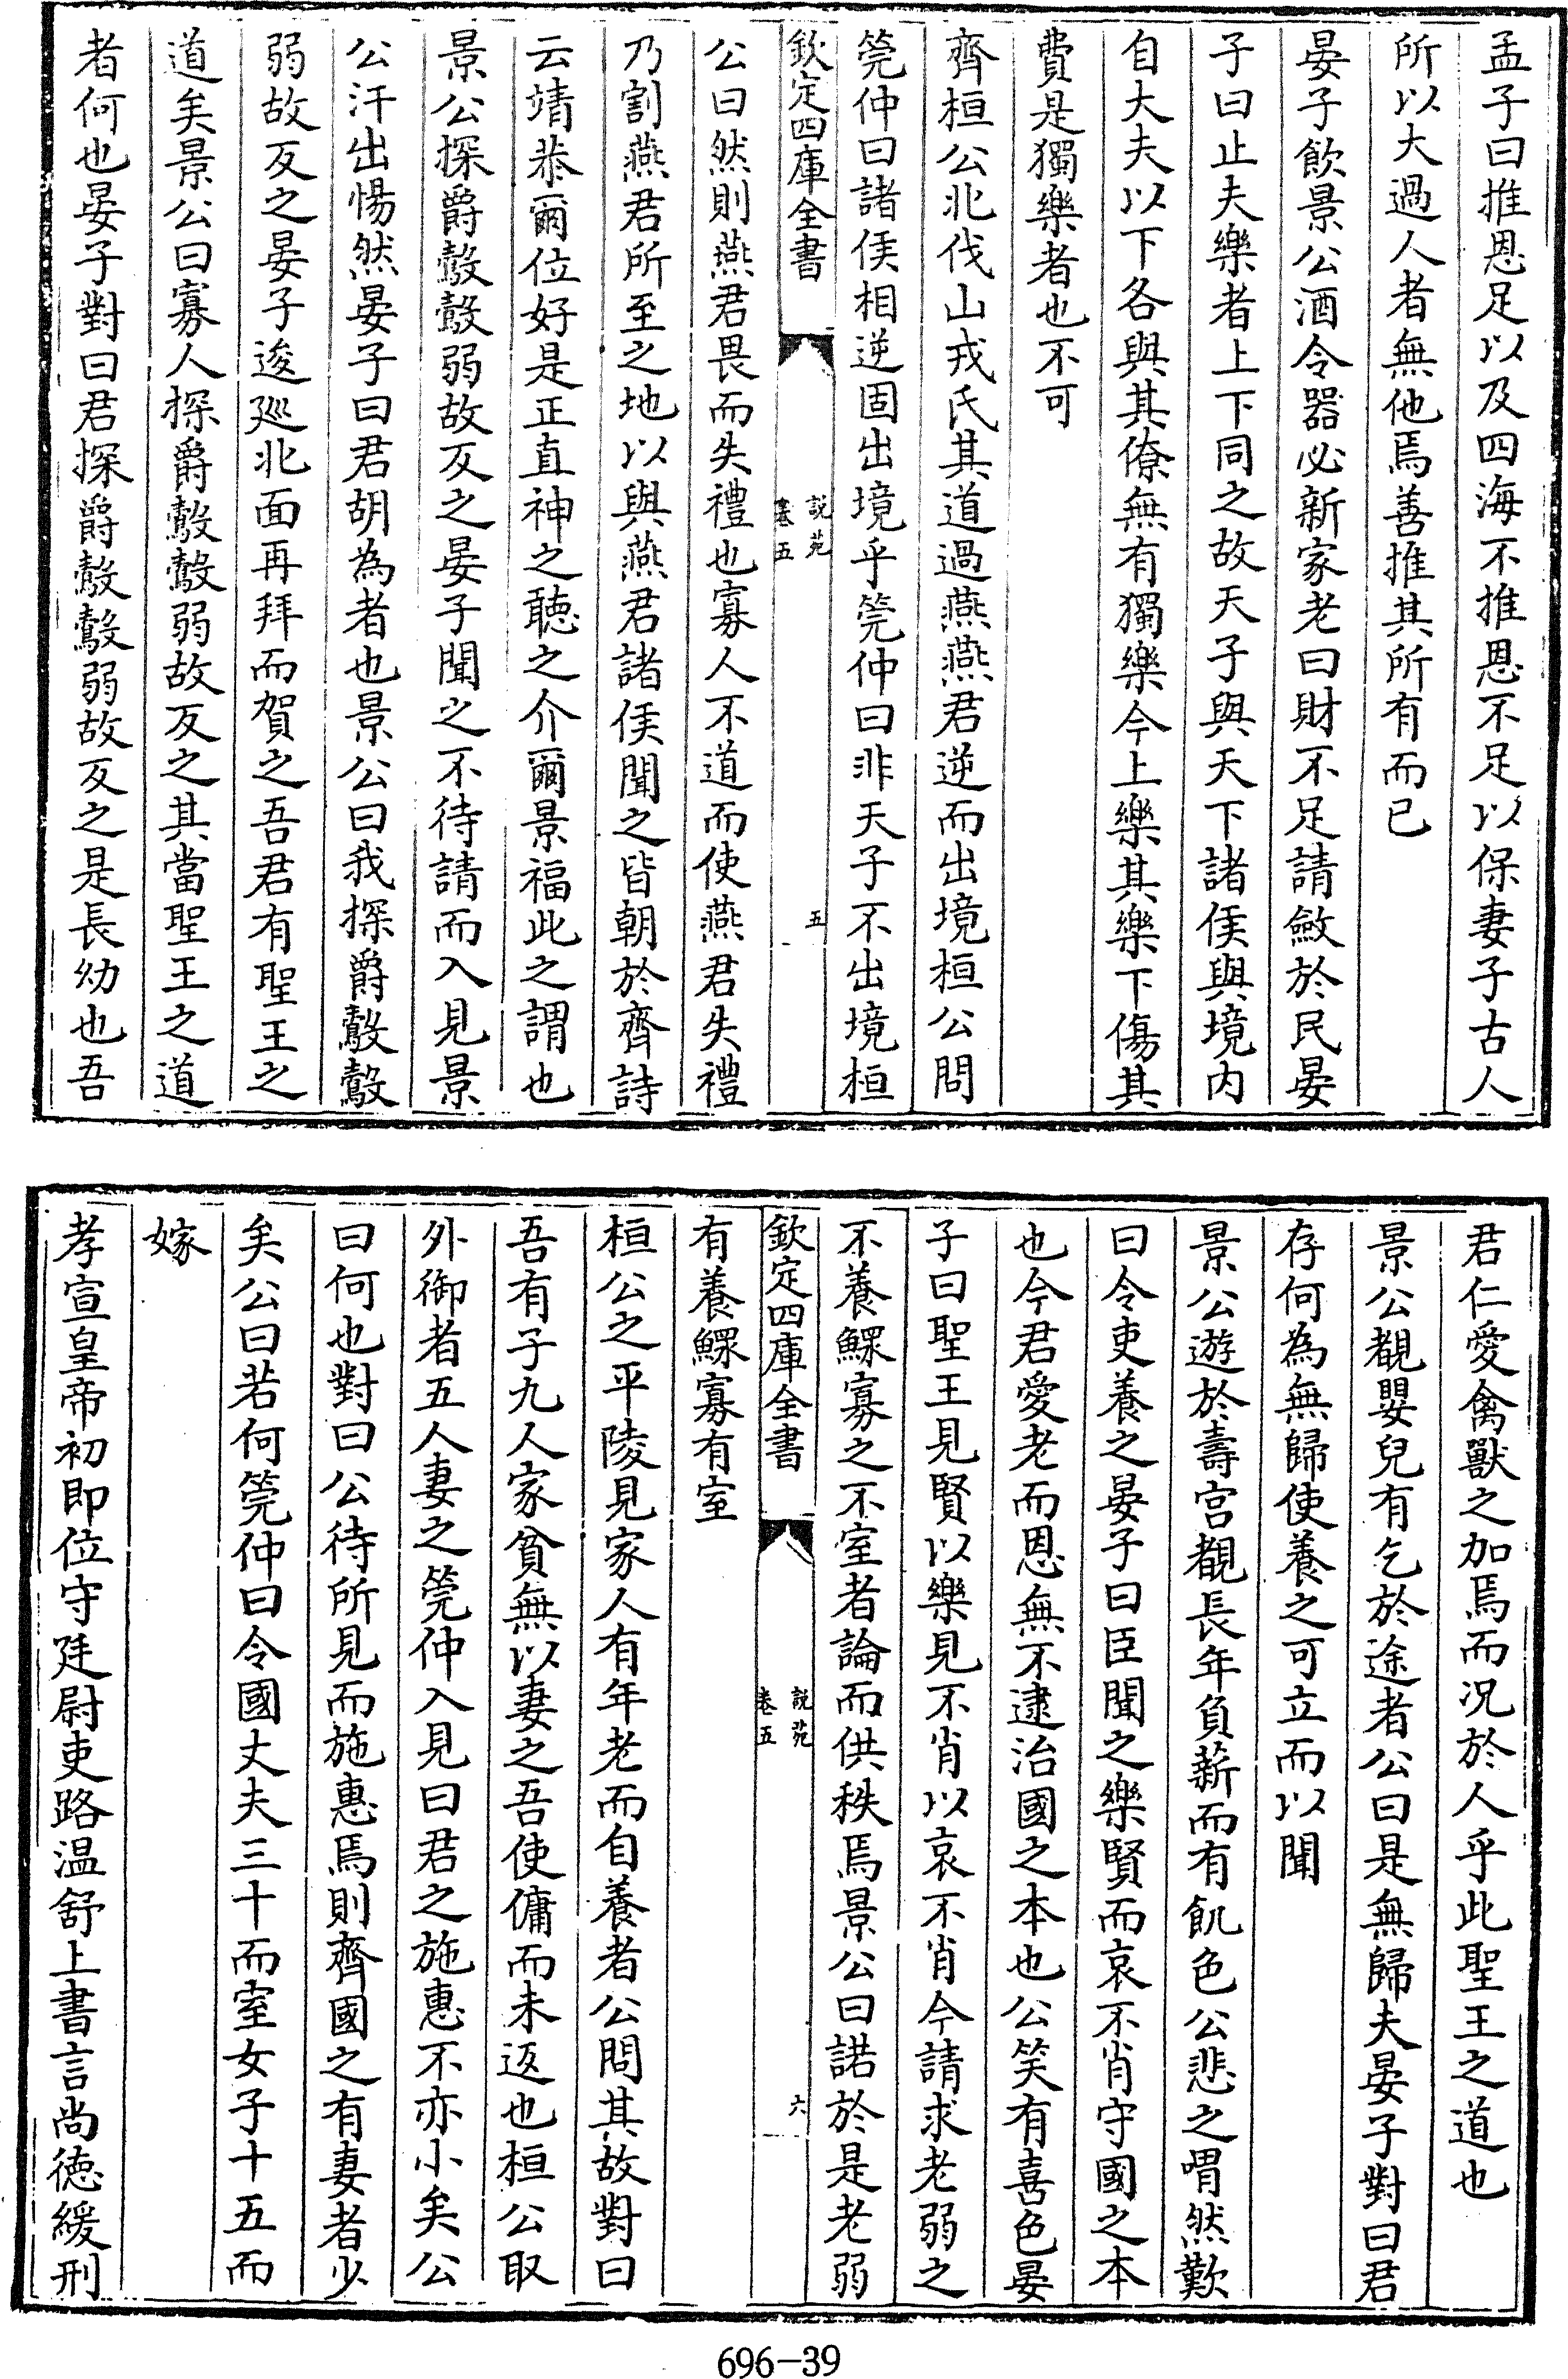 孟子曰推恩足以及四海不推恩不足以保妻子古人
所以大過人者無他焉善推其所有而已
晏子飲景公酒令器必新家老曰財不足請斂於民晏
子曰止夫樂者上下同之故天子與天下諸侯與境内
自大夫以下各與其僚無有獨樂今上樂其樂下傷其
費是獨樂者也不可
齊桓公北伐山戎氏其道過燕燕君逆而出境桓公問
筦仲曰諸侯相逆固出境乎筦仲曰非天子不出境桓
欽定四庫全書
說苑
卷五
五
公曰然則燕君畏而失禮也寡人不道而使燕君失禮
乃割燕君所至之地以與燕君諸侯聞之皆朝於齊詩
云靖恭爾位好是正直神之聽之介爾景福此之謂也
景公探爵鷇鷇弱故反之晏子聞之不待請而入見景
公汗出惕然晏子曰君胡為者也景公曰我探爵鷇鷇
弱故反之晏子逡廵北面再拜而賀之吾君有聖王之
道矣景公曰寡人探爵鷇鷇弱故反之其當聖王之道
者何也晏子對曰君探爵鷇鷇弱故反之是長幼也吾
君仁愛禽獸之加焉而况於人乎此聖王之道也
景公覩嬰兒有乞於途者公曰是無歸夫晏子對曰君
存何為無歸使養之可立而以聞
景公遊於壽宮覩長年負薪而有飢色公悲之喟然歎
曰令吏養之晏子曰臣聞之樂賢而哀不肖守國之本
也今君愛老而恩無不逮治國之本也公笑有喜色晏
子曰聖王見賢以樂見不肖以哀不肖今請求老弱之
不養鰥寡之不室者論而供秩焉景公曰諾於是老弱
欽定四庫全書
說苑
卷五
六
有養鰥寡有室
桓公之平陵見家人有年老而自養者公問其故對曰
吾有子九人家貧無以妻之吾使傭而未返也桓公取
外御者五人妻之筦仲入見曰君之施惠不亦小矣公
曰何也對曰公待所見而施惠焉則齊國之有妻者少
矣公曰若何筦仲曰令國丈夫三十而室女子十五而
嫁
孝宣皇帝初即位守廷尉吏路温舒上書言尚德緩刑
696-39